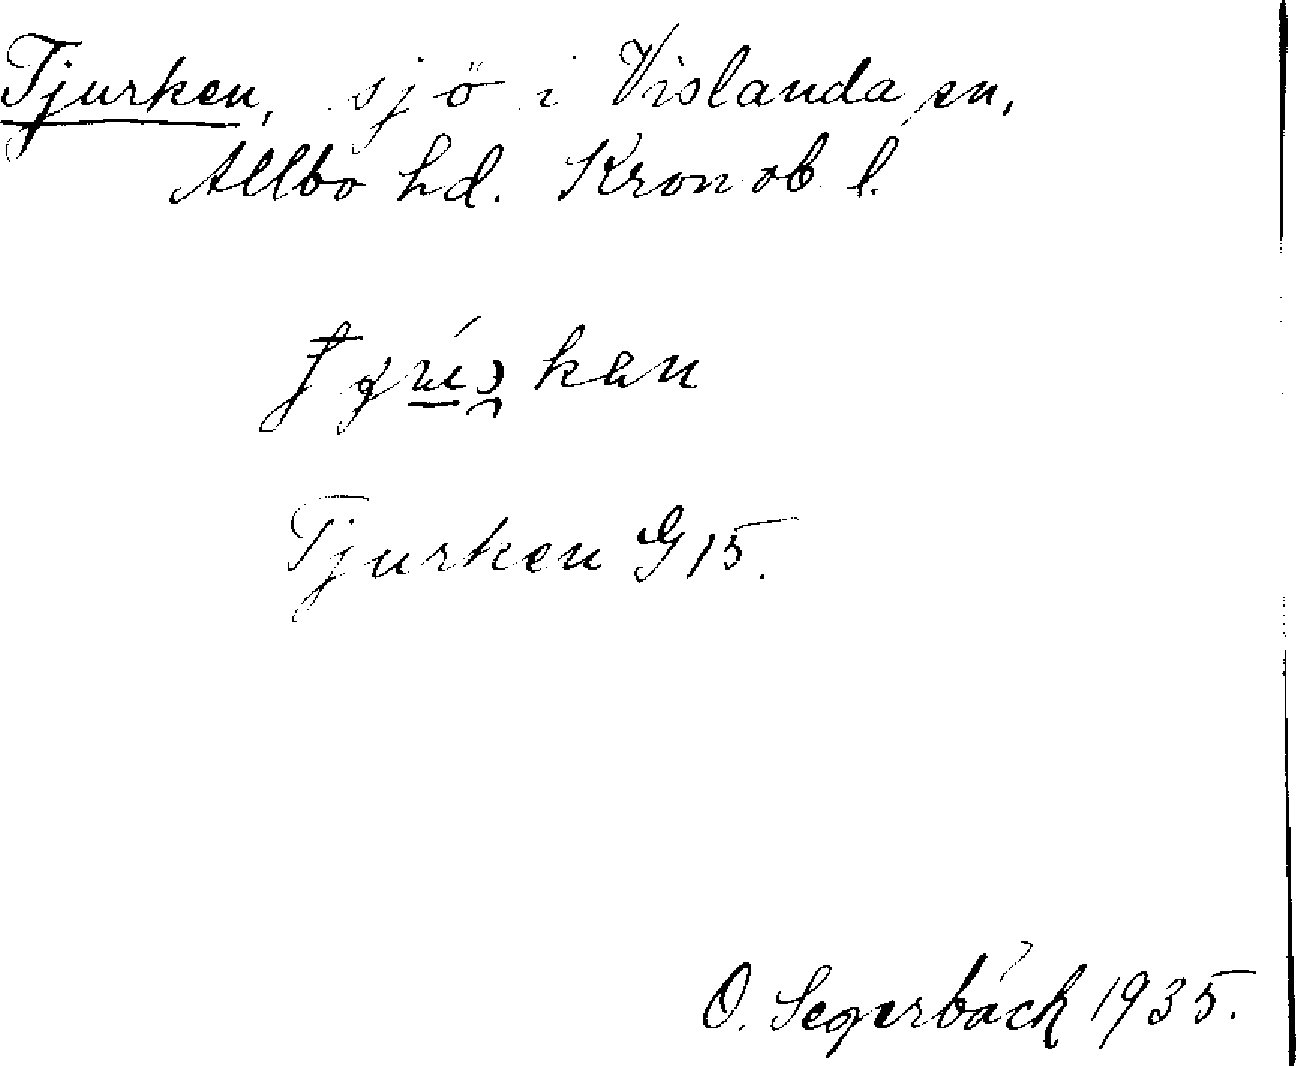 Tjurken, sjö i Vislanda sn,
Allbo hd. Kronob l.
Tjurken G 15.
O. Segerbäck 1935.